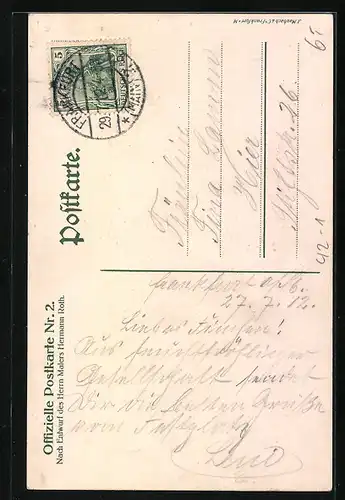 J. Maubach & Co. Frankfurt a. M.
65
5
FRANKFURT
(MAIN)
29.
12
Postkarte.
Offizielle Postkarte Nr. 2.
Nach Entwurf des Herrn Malers Hermann Roth.
Fräulein
Tina
Hier
26
42-1
Frankfurt a/M.
27. 7. 12.
Liebes Tinchen!
Aus feuchtfröhlicher
Gesellschaft sendet
Dir die besten Grüße
vom Festplatz